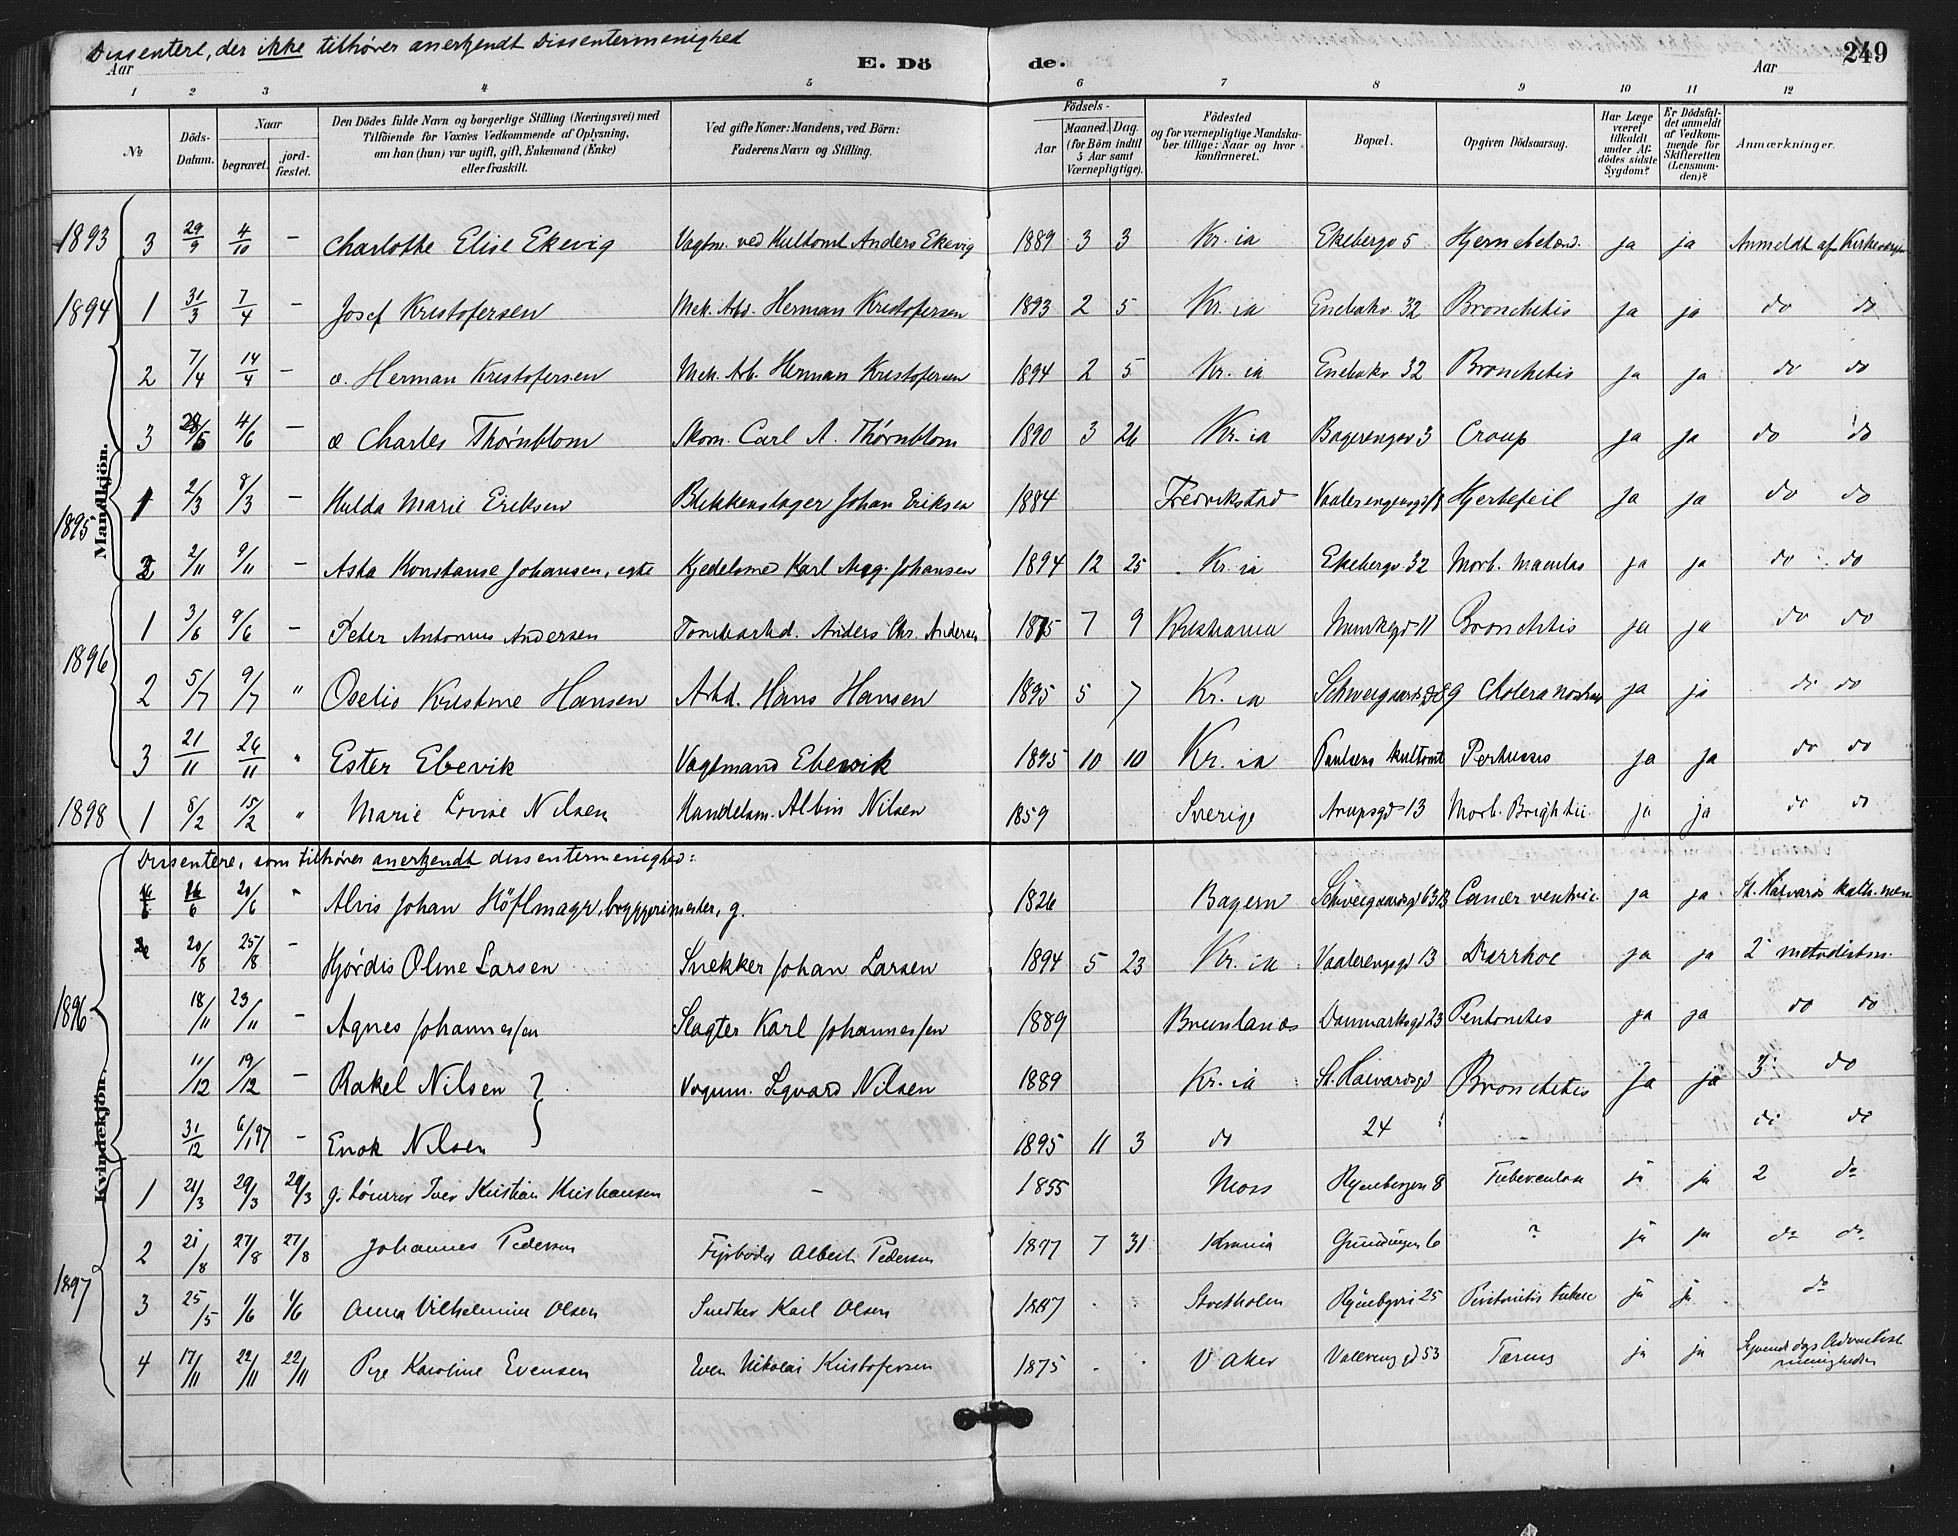 Dissentere, der ikke tilhører anerkjendt Dissentermenighed
Aar
E. Dö
de.
Aar
249
1 2 3 4 5 6 7 8 9 10 11 12
№
Döds-Datum.
Naar
begravet.
jord-fæstet.
Den Dödes fulde Navn og borgerlige Stilling (Næringsvei) med
Tilföiende for Voxnes Vedkommende af Oplysning,
om han (hun) var ugift, gift, Enkemand (Enke)
eller fraskilt.
Ved gifte Koner: Mandens, ved Börn:
Faderens Navn og Stilling.
Födsels-
Aar
Maaned. Dag.
(for Börn indtil
5 Aar samt
Værnepligtige).
Födested
og for værnepligtige Mandska-
ber tillige: Naar og hvor
konfirmeret.
Bopæl.
Opgiven Dödsaarsag.
Har Læge
været
tilkaldt
under Af-
dödes sidste
Sygdom?
Er Dödsfal-
det anmeldt
af Vedkom-
mende for
Skifteretten
(Lensman-
den)?
Anmærkninger.
Mandkjön.
1893 3 29/9 4/10 – Charlotte Elise Ekevig Vagtm. ved Kultomt Anders Ekevig 1889 3 3 Kr.ia Ekebergv 5 Hjernebetænd. ja ja Anmeldt af
1894 1 31/3 7/4 – Josef Kristofersen Mek. Arb. Herman Kristofersen 1893 2 5 Kr.ia Enebakv 32 Bronchitis ja ja do do
2 7/4 14/4 – Herman Kristofersen Mek. Arb. Herman Kristofersen 1894 2 5 Kr.ia Enebakv 32 Bronchitis ja ja do do
3 4/6 – Charles Thørnblom Skom. Carl A. Thørnblom 1890 3 26 Kr.ia 3 Croup ja ja do do
1895 1 2/3 8/3 – Hulda Marie Eriksen Blikkenslager Johan Eriksen 1884 Fredrikstad Hjertefeil ja ja do do
2 2/11 9/11 – Asta Konstanse Johansen, egte Kjedelsmed Karl Aug. Johansen 1894 12 25 Kr.ia Ekebergv 32 Morb. ja ja do do
1896 1 3/6 9/6 – Peter Antonius Andersen Anders Chr. Andersen 7 9 Kristiania Munkegd 11 Bronchitis ja ja do do
2 5/7 9/7 " Kristine Hansen Arbd. Hans Hansen 1895 5 7 Kr.ia Cholera ja ja do do
3 21/11 26/11 " Ester Ekevik Vagtmand Ekevik 1895 10 10 Kr.ia Kultomt Pertussis ja ja do do
1898 1 8/2 15/2 " Marie Lovise Nilsen Handelsm. Albin Nilsen 1859 Sverige Arupsgd 13 Morb. Brightii ja ja do do
Dissentere, som tilhører anerkjendt dissentermenighed:
Kvindekjön.
1896 16/6 20/6 " Johan Höflmayr, bryggerimester, g. 1826 Bayern Schweigaardsgd 63B Cancer ventric. ja ja St. Halvards kath. men
20/8 25/8 – Hjørdis Oline Larsen Snekker Johan Larsen 1894 5 23 Kr.ia Vaalerengsgd 13 Diarrhoe ja ja 2 metodistm.
18/11 23/11 – Agnes Johannessen Slagter Karl Johannessen 1889 Brunlanæs Danmarksgd 23 Peritonitis ja ja do do
11/12 19/12 – Rakel Nilsen Vognm. Sigvard Nilsen 1889 Kr.ia St. Halvardsgd Bronchitis ja ja 3 do
31/12 6/1 97 – Enok Nilsen 1895 11 3 do 24 do do
1897 1 21/3 29/3 29/3 g. Tømrer Iver Kristian Kristiansen – 1855 Moss Ryenbergen 8 Tuberculose ja ja 2 do
2 21/8 27/8 27/8 Johannes Pedersen Fyrbøder Albert Pedersen 1897 7 31 Krania Grundingen 6 ? ja ja do do
3 25/5 1/6 1/6 Anna Vilhelmine Olsen Snedker Karl Olsen 1887 Stockholm 25 Peritonitis ja ja do
4 17/11 22/11 22/11 Karoline Evensen Even Nikolai Kristofersen 1875 V Aker Valereng gd 53 ja ja Syvend dags Adventist
menigheden